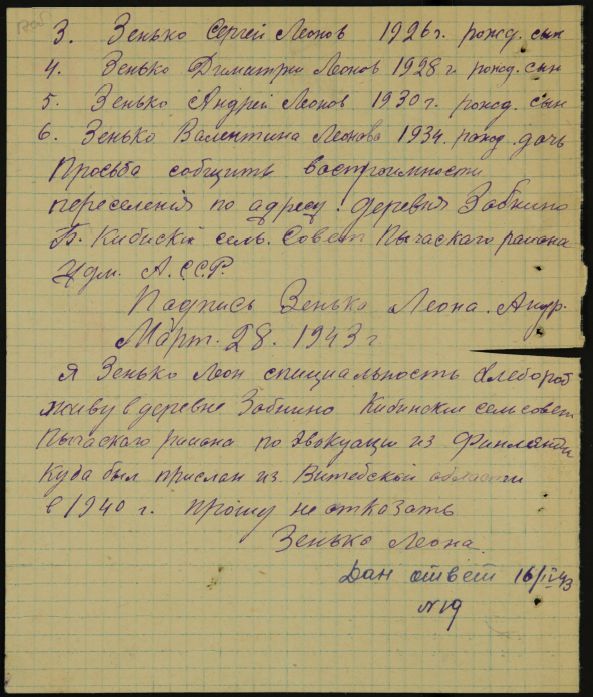 3. Зенько Сергей Леонов 1926 г. рожд. сын
4. Зенько Димитри Леонов 1928 г. рожд. сын
5. Зенько Андрей Леонов 1930 г. рожд. сын
6. Зенько Валентина Леонова 1934. рожд. дочь
Просьба собщить
переселения по адресу: деревня Забнино
Б. Кибиский сель. Совет Пычаскаго района
Удм. А.С.С.Р.
Падпись Зенько Леона. Андр.
Март. 28. 1943 г
я Зенько Леон специальность хлебороб
живу в деревне Забнино Кибинские сельсовет
Пычаскаго района по эвокуаци из Финлянти
Куда был прислан из Витебской области
в 1940 г. прошу не отказать
Зенько Леона.
Дан ответ 16/IV-43
N 19